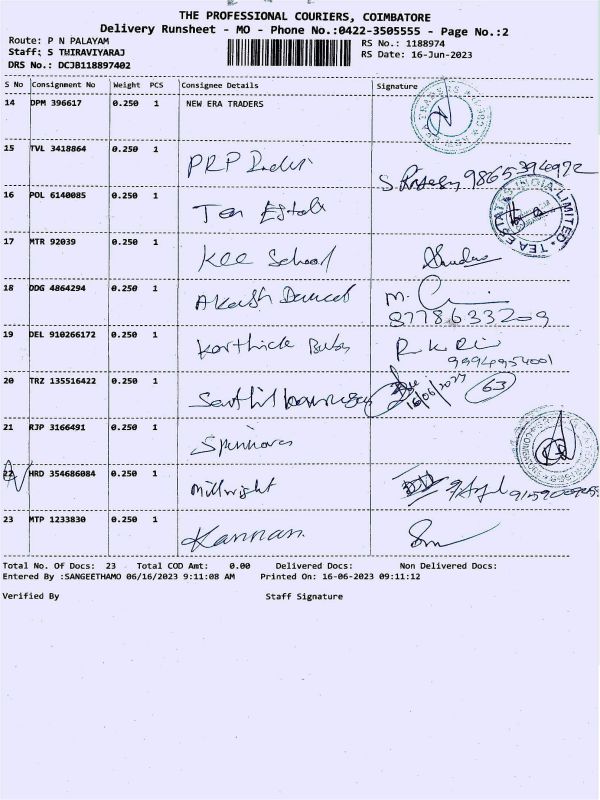 THE PROFESSIONAL COURIERS, COIMBATORE
Delivery Runsheet - MO - Phone No.:0422-3505555 - Page No.:2
Route: P N PALAYAM
RS No.: 1188974
Staff: S THIRAVIYARAJ
RS Date: 16-Jun-2023
DRS No.: DCJB118897402
S No Consignment No Weight PCS Consignee Details Signature
14 DPM 396617 0.250 1 NEW ERA TRADERS
15 TVL 3418864 0.250 1 PRP
16 POL 6140085 0.250 1 Tea Estate
TEA ESTATES INDIA LIMITED
17 MTR 92039 0.250 1 Kee School
18 DDG 4864294 0.250 1 Akash
M.
8778633209
19 DEL 910266172 0.250 1 Karthick Babu
20 TRZ 135516422 0.250 1
16/06/2023 63
21 RJP 3166491 0.250 1
22 HRD 354686084 0.250 1 Millwright
23 MTP 1233830 0.250 1 Kannan
Total No. Of Docs: 23 Total COD Amt: 0.00 Delivered Docs: Non Delivered Docs:
Entered By :SANGEETHAMO 06/16/2023 9:11:08 AM Printed On: 16-06-2023 09:11:12
Verified By Staff Signature